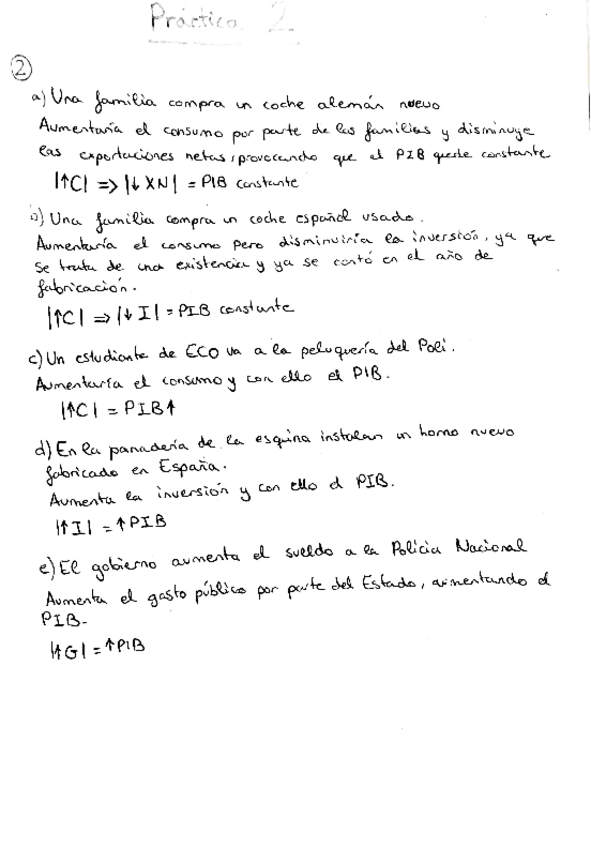 Práctica 2
②
a) Una familia compra un coche alemán nuevo
Aumentaría el consumo por parte de las familias y disminuye
las exportaciones netas, provocando que el PIB quede constante
|↑C| => |↓XN| = PIB constante
b) Una familia compra un coche español usado.
Aumentaría el consumo pero disminuiría la inversión, ya que
se trata de una existencia y ya se contó en el año de
fabricación.
|↑C| => |↓I| = PIB constante
c) Un estudiante de ECO va a la peluquería del Poli.
Aumentaría el consumo y con ello el PIB.
|↑C| = PIB↑
d) En la panadería de la esquina instalan un horno nuevo
fabricado en España.
Aumenta la inversión y con ello el PIB.
|↑I| = ↑PIB
e) El gobierno aumenta el sueldo a la Policia Nacional
Aumenta el gasto público por parte del Estado, aumentando el
PIB.
|↑G| = ↑PIB